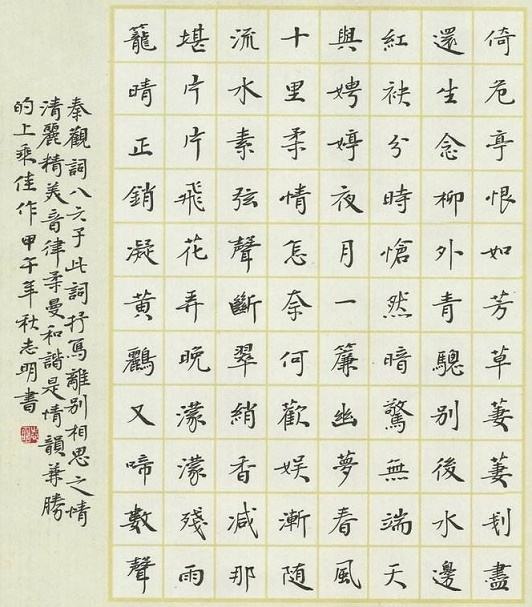 倚危亭恨如芳草萋萋刬盡
還生念柳外青驄別後水邊
紅袂分時愴然暗驚無端天
與娉婷夜月一簾幽夢春風
十里柔情怎奈何歡娱漸随
流水素弦聲斷翠綃香減那
堪片片飛花弄晚濛濛殘雨
籠晴正銷凝黄鸝又啼數聲
秦觀詞八六子此詞抒寫離別相思之情
清麗精美音律柔曼和諧是情韻兼勝
的上乘佳作甲午年秋志明書